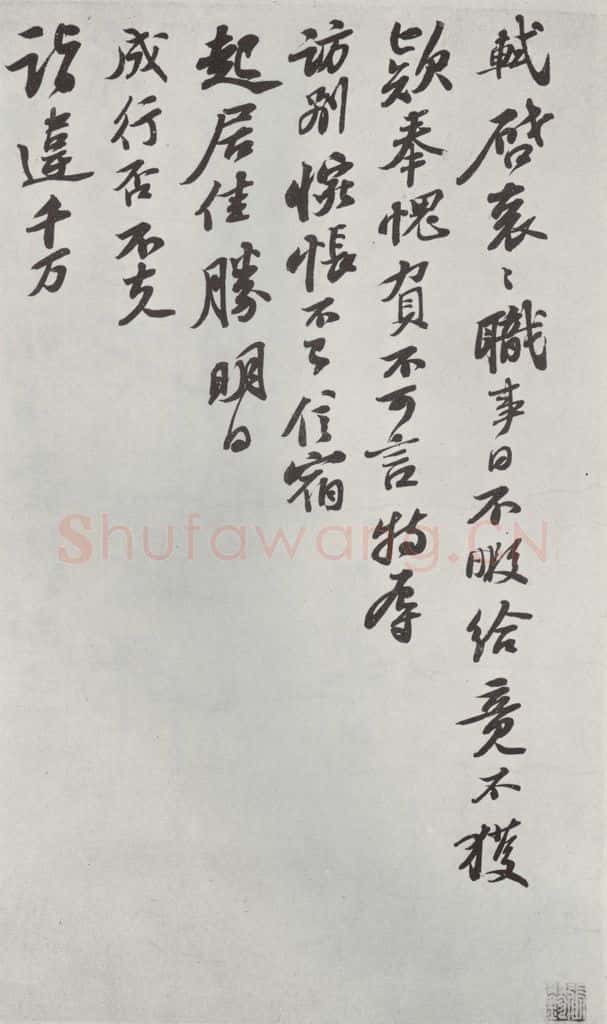 軾啓衰〻職事日不暇給竟不獲
款奉愧負不可言特辱
訪別惋悵不已信宿
起居佳勝明日
成行否不克
詣違千万
Shufawang.CN